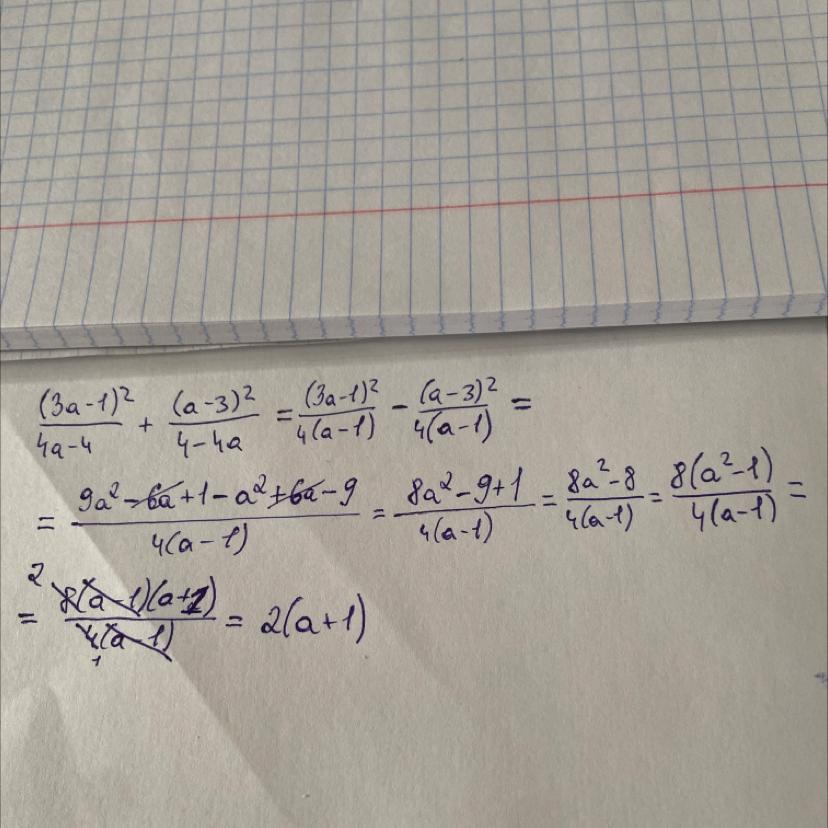 (3a-1)²/(4a-4) + (a-3)²/(4-4a) = (3a-1)²/(4(a-1)) - (a-3)²/(4(a-1)) =
= (9a²-6a+1-a²+6a-9)/(4(a-1)) = (8a²-9+1)/(4(a-1)) = (8a²-8)/(4(a-1)) = (8(a²-1))/(4(a-1)) =
= (2 8(a-1)(a+1))/(4(a-1) 1) = 2(a+1)